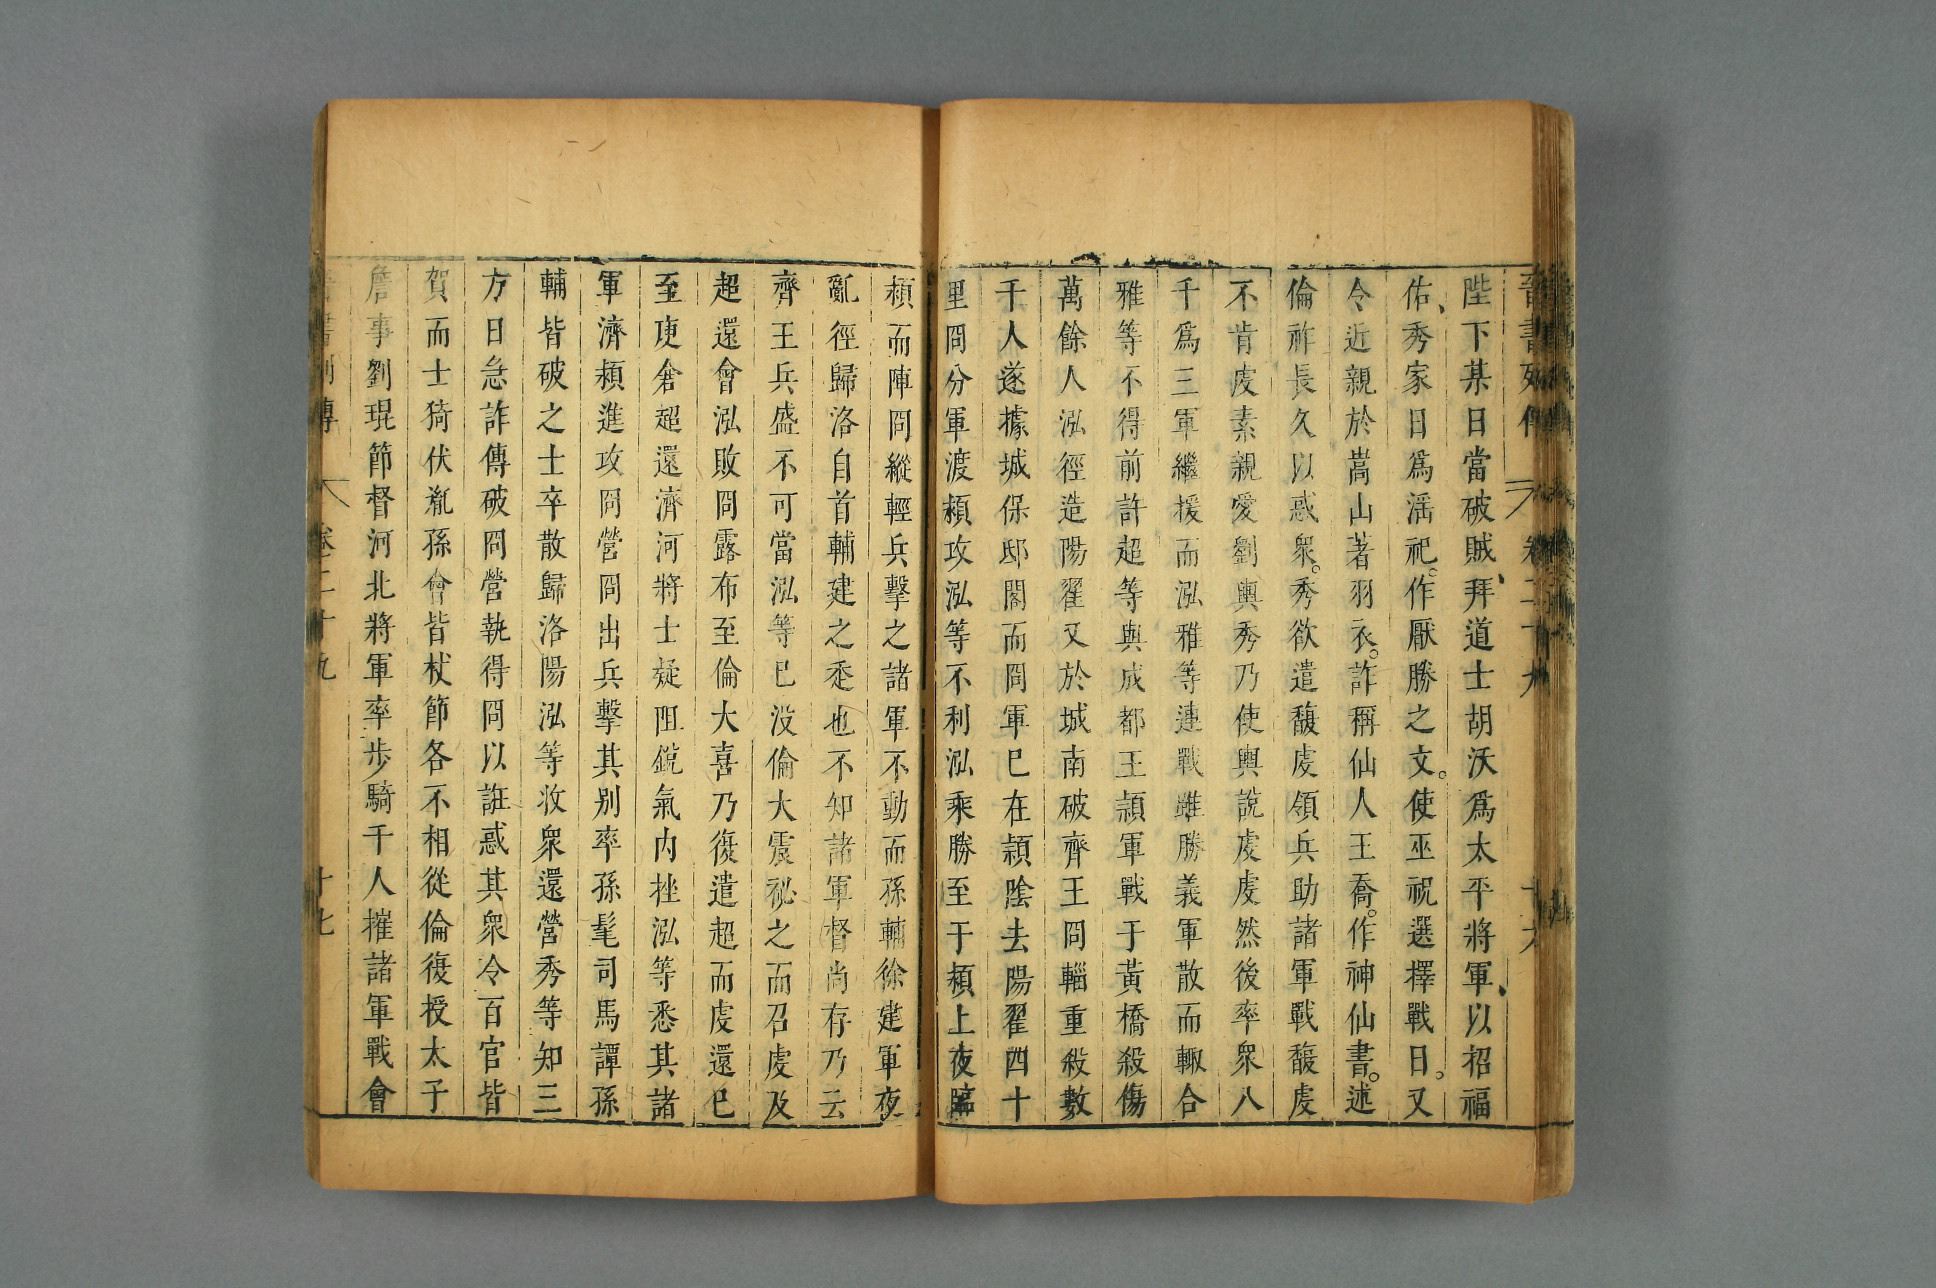 晉書列傳 卷二十九 十六
陛下某日當破賊、拜道士胡沃爲太平將軍、以招福
佑、秀家日爲淫祀。作厭勝之文。使巫祝選擇戰日。又
令近親於嵩山著羽衣。詐稱仙人王喬。作神仙書。述
倫祚長久以惑衆。秀欲遣馥虔領兵助諸軍戰馥虔
不肯虔素親愛劉輿秀乃使輿說虔虔然後率衆八
千爲三軍繼援而泓雅等連戰雖勝義軍散而輙合
雅等不得前許超等與成都王頴軍戰于黃橋殺傷
萬餘人泓徑造陽翟又於城南破齊王冏輜重殺數
千人遂據城保邸閣而冏軍已在潁陰去陽翟四十
里冏分軍渡潁攻泓等不利泓乘勝至于潁上夜臨
潁而陣冏縱輕兵擊之諸軍不動而孫輔徐建軍夜
亂徑歸洛自首輔建之走也不知諸軍督尚存乃云
齊王兵盛不可當泓等已没倫大震祕之而召虔及
超還會泓敗冏露布至倫大喜乃復遣超而虔還已
至庾倉超還濟河將士疑阻銳氣內挫泓等悉其諸
軍濟潁進攻冏營冏出兵擊其别率孫髦司馬譚孫
輔皆破之士卒散歸洛陽泓等收衆還營秀等知三
方日急詐傳破冏營執得冏以誑惑其衆令百官皆
賀而士猗伏胤孫會皆杖節各不相從倫復授太子
詹事劉琨節督河北將軍率步騎千人摧諸軍戰會
晉書列傳 卷二十九 十七